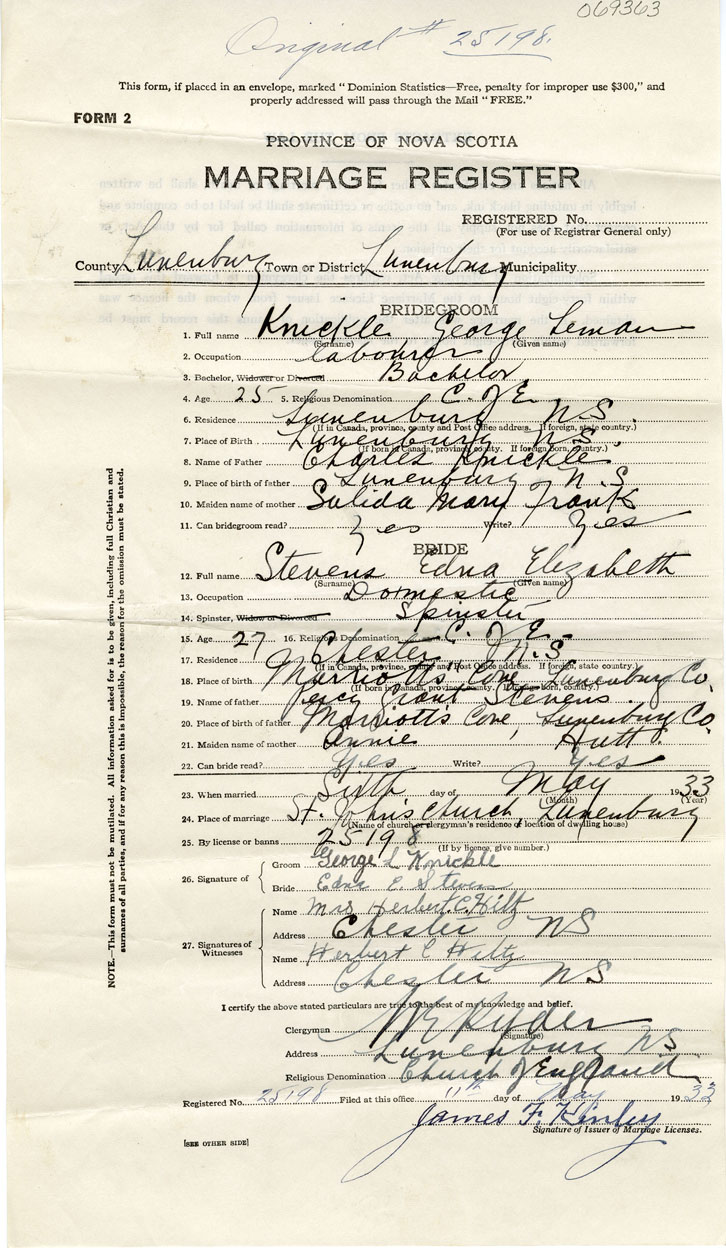 069363
Original # 25198.
This form, if placed in an envelope, marked "Dominion Statistics—Free, penalty for improper use $300," and
properly addressed will pass through the Mail "FREE."
FORM 2
PROVINCE OF NOVA SCOTIA
MARRIAGE REGISTER
REGISTERED No.
(For use of Registrar General only)
County Lunenburg Town or District Lunenburg Municipality
BRIDEGROOM
1. Full name Knickle George Leman
(Surname) (Given name)
2. Occupation labourer
3. Bachelor, Widower or Divorced Bachelor
4. Age 25 5. Religious Denomination C. of E.
6. Residence Lunenburg N.S.
(If in Canada, province, county and Post Office address. If foreign, state country.)
7. Place of Birth Lunenburg N.S.
(If born in Canada, province, county. If foreign born, country.)
8. Name of Father Charles Knickle
9. Place of birth of father Lunenburg N.S
10. Maiden name of mother Salida Mary Frank
11. Can bridegroom read? Yes Write? Yes
BRIDE
12. Full name Stevens Edna Elizabeth
(Surname) (Given name)
13. Occupation Domestic
14. Spinster, Widow or Divorced Spinster
15. Age 27 16. Religious Denomination C. of E.
17. Residence Chester N.S
(If in Canada, province, county and Post Office address. If foreign, state country.)
18. Place of birth Marriotts Cove, Lunenburg Co.
(If born in Canada, province, county. If foreign born, country.)
19. Name of father Percy Grant Stevens
20. Place of birth of father Marriott's Cove, Lunenburg Co.
21. Maiden name of mother Annie Hutt
22. Can bride read? Yes Write? Yes
23. When married Sixth day of May 1933
(Month) (Year)
24. Place of marriage St. John's Church, Lunenburg
(Name of church or clergyman's residence or location of dwelling house)
25. By license or banns 25198
(If by licence, give number.)
26. Signature of
Groom George L Knickle
Bride Edna E. Stevens
27. Signatures of Witnesses
Name Mrs Herbert C. Hiltz
Address Chester NS
Name Herbert C Hiltz
Address Chester NS
I certify the above stated particulars are true to the best of my knowledge and belief.
Clergyman Ryder
(Signature)
Address Lunenburg NS
Religious Denomination Church of England
Registered No. 25198 Filed at this office 11th day of May 1933
James F. Kinley
Signature of Issuer of Marriage Licenses.
[SEE OTHER SIDE]
NOTE.—This form must not be mutilated. All information asked for is to be given, including full Christian and
surnames of all parties, and if for any reason this is impossible, the reason for the omission must be stated.